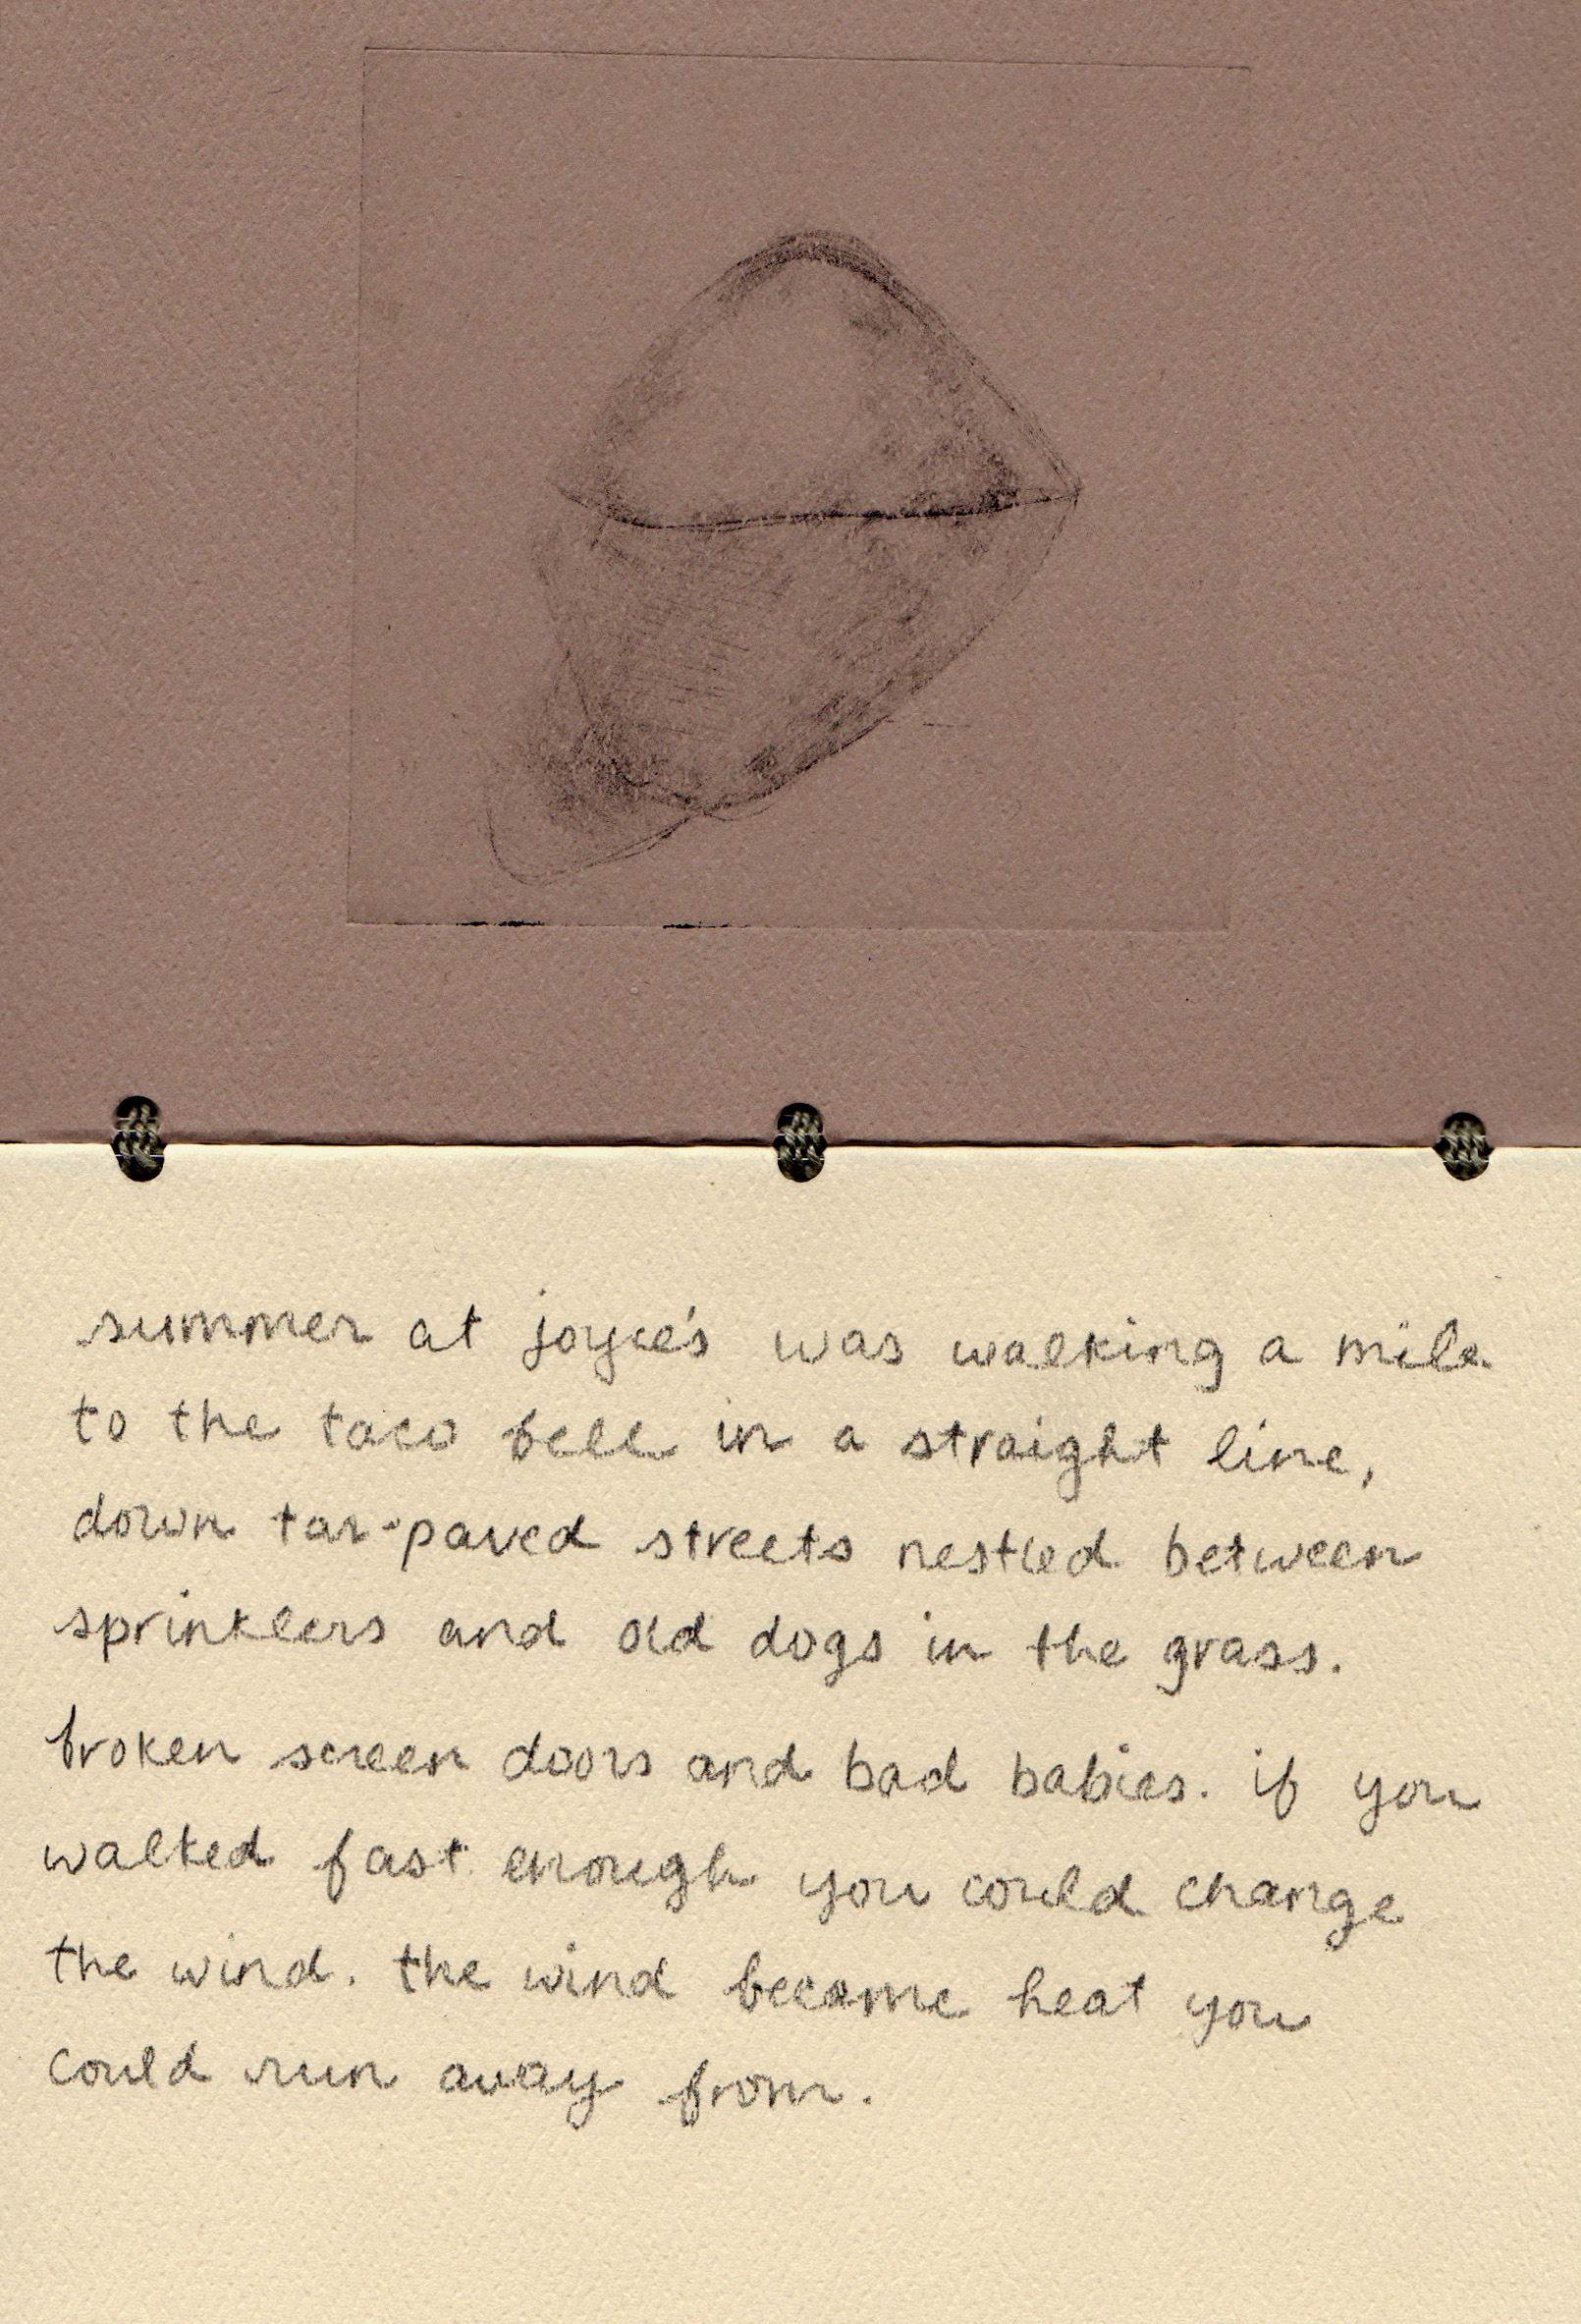 summer at joyce's was walking a mile
to the taco bell in a straight line,
down tar-paved streets nestled between
sprinklers and old dogs in the grass.
broken screen doors and bad babies. if you
walked fast enough you could change
the wind. the wind became heat you
could run away from.